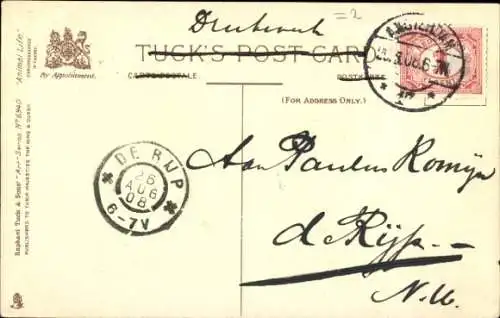 Drukwerk
= 2
TUCK'S POST CARD
CARTE POSTALE.
POSTKARTE
(FOR ADDRESS ONLY.)
By Appointment.
"Animal Life."
Raphael Tuck & Sons' "Art" Series Nº 6940
PUBLISHERS TO THEIR MAJESTIES THE KING & QUEEN
AMSTERDAM
DE RIJP
26
AUG
08
6-7V
Aan Paulus Komijn
de Rijp
N.H.